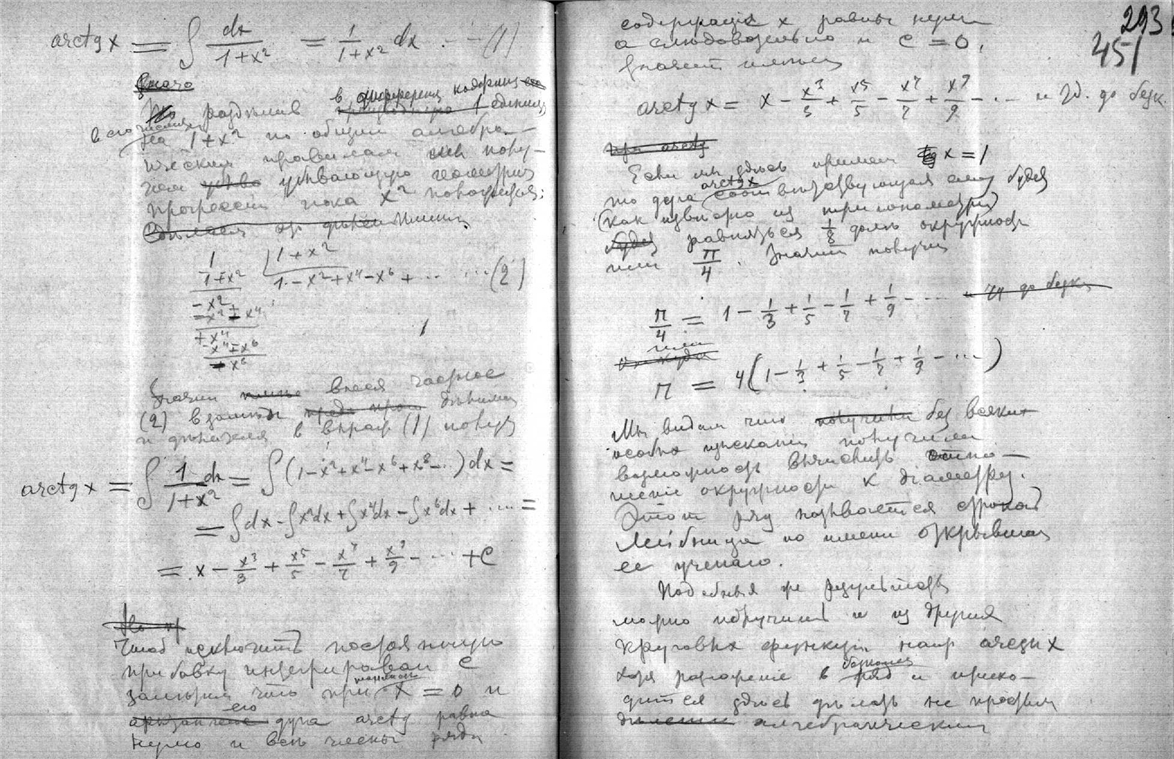 arctg x = ∫ dx / 1+x² = 1 / 1+x² dx. - (1)
Иначе
разделив в
в его 1+x² по общим алгебра-
ическим правилам мы полу-
чим убывающую геометрич
прогрессию пока x²
имеем
1 / 1+x² | 1+x²
1-x²+x⁴-x⁶+ ... ... (2)
-x²
-x²-x⁴
+x⁴
x⁴+x⁶
-x⁶
Значит внеся частное
(2) взамен делимого
и делителя в выраж (1) получ
arctg x = ∫ 1 dx / 1+x² = ∫(1-x²+x⁴-x⁶+x⁸-..)dx =
= ∫dx - ∫x²dx + ∫x⁴dx - ∫x⁶dx + .... =
= x - x³/3 + x⁵/5 - x⁷/7 + x⁹/9 - ... + C
Чтоб исключить постоянную
прибавку C
заметим что при x = 0 и
его дуга arctg равна
нулю и все члены ряда
293
451
содержащие x равны нулю
а следовательно и C = 0.
Значит имеем
arctg x = x - x³/3 + x⁵/5 - x⁷/7 + x⁹/9 - ... и т.д. до беск
при arctg
Если мы здесь примем x = 1
то дуга arctg x соответствующая ему будет
(как известно из тригонометрии)
равняться 1/8 доли окружности
или π/4. Значит получим
π/4 = 1 - 1/3 + 1/5 - 1/7 + 1/9 - .... до беск
или
π = 4(1 - 1/3 + 1/5 - 1/7 + 1/9 - ...)
Мы видим что получили без всяких
особых изысканий получили
возможность вычислить отно-
шение окружности к диаметру.
Этот ряд называется строкой
Лейбница по имени открывшего
ее ученого.
Подобный же результат
можно получить и из других
круговых функций напр arcsin x
хотя разложение в ряд и прихо-
дится здесь делать не простым
делением алгебраическим